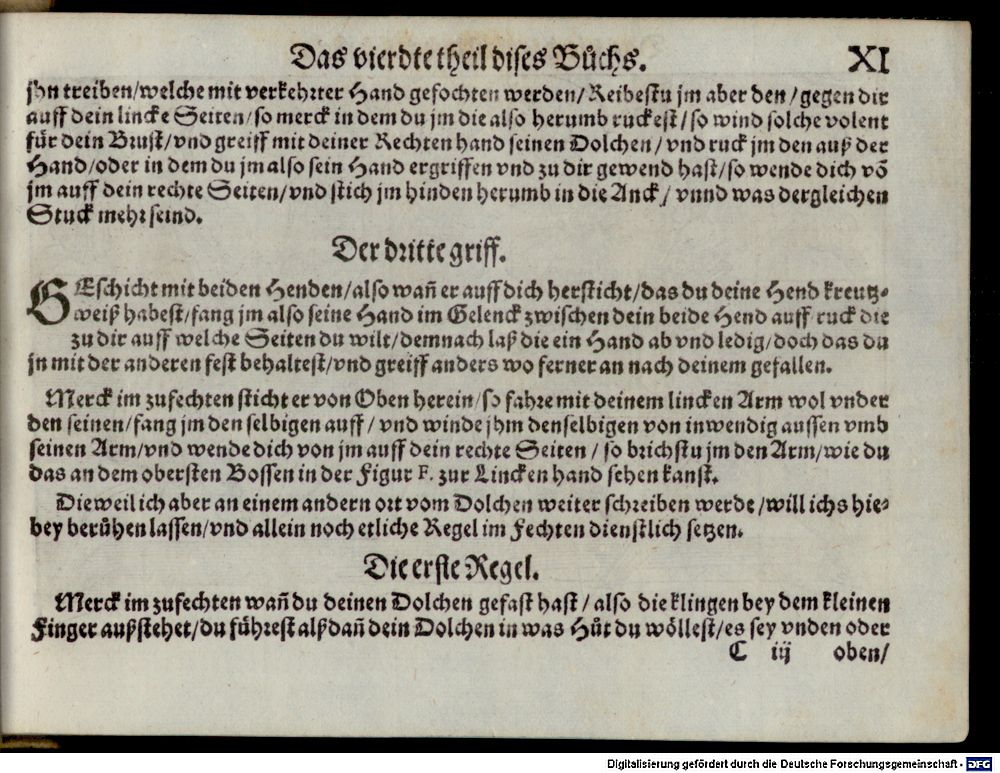 Das vierdte theil dises Bůchs. XI
jhn treiben/welche mit verkehrter Hand gefochten werden/Reibestu jm aber den/gegen dir
auff dein lincke Seiten/so merck in dem du jm die also herumb ruckest/so wind solche volent
für dein Brust/vnd greiff mit deiner Rechten hand seinen Dolchen/vnd ruck jm den auß der
Hand/oder in dem du jm also sein Hand ergriffen vnd zu dir gewend hast/so wende dich võ
jm auff dein rechte Seiten/vnd stich jm hinden herumb in die Anck/vnnd was dergleichen
Stuck mehr seind.
Der dritte griff.
GEschicht mit beiden Henden/also wañ er auff dich hersticht/das du deine Hend kreutz-
weiß habest/fang jm also seine Hand im Gelenck zwischen dein beide Hend auff/ruck die
zu dir auff welche Seiten du wilt/demnach laß die ein Hand ab vnd ledig/doch das du
jn mit der anderen fest behaltest/vnd greiff anders wo ferner an nach deinem gefallen.
Merck im zufechten sticht er von Oben herein/so fahre mit deinem lincken Arm wol vnder
den seinen/fang jm den selbigen auff/vnd winde jhm denselbigen von inwendig aussen vmb
seinen Arm/vnd wende dich von jm auff dein rechte Seiten/so brichstu jm den Arm/wie du
das an dem obersten Bossen in der Figur F. zur Lincken hand sehen kanst.
Dieweil ich aber an einem andern ort vom Dolchen weiter schreiben werde/will ichs hie-
bey berůhen lassen/vnd allein noch etliche Regel im Fechten dienstlich setzen.
Die erste Regel.
Merck im zufechten wañ du deinen Dolchen gefast hast/also die klingen bey dem kleinen
Finger außstehet/du führest alßdañ dein Dolchen in was Hůt du wöllest/es sey vnden oder
C iij oben/
Digitalisierung gefördert durch die Deutsche Forschungsgemeinschaft - DFG